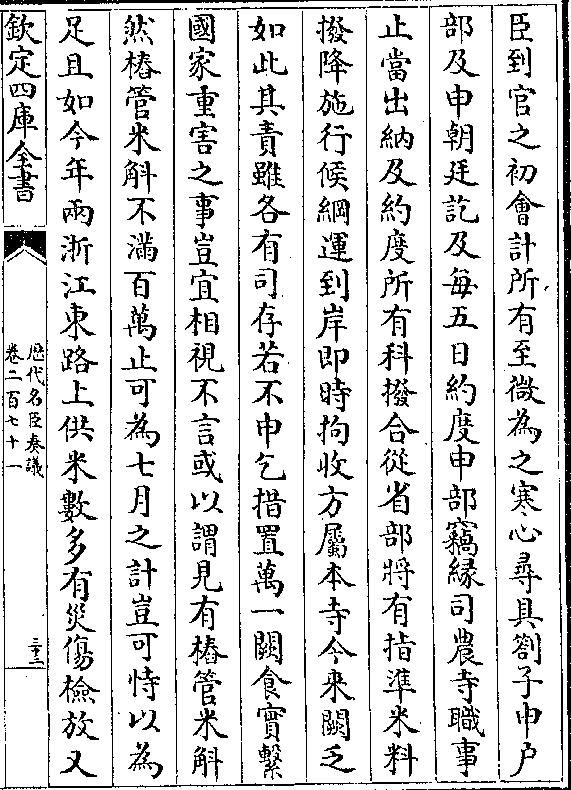 臣到官之初會計所有至微為之寒心尋具劄子申户
部及申朝廷訖及每五日約度申部竊緣司農寺職事
止當出納及約度所有科撥合從省部將有指準米料
撥降施行候綱運到岸即時拘收方屬本寺今來闕乏
如此其責雖各有司存若不申乞措置萬一闕食實繫
國家重害之事豈宜相視不言或以謂見有樁管米斛
然樁管米斛不滿百萬止可為七月之計豈可恃以為
足且如今年兩浙江東路上供米數多有災傷檢放又
欽定四庫全書
歴代名臣奏議
卷二百七十一
三十二